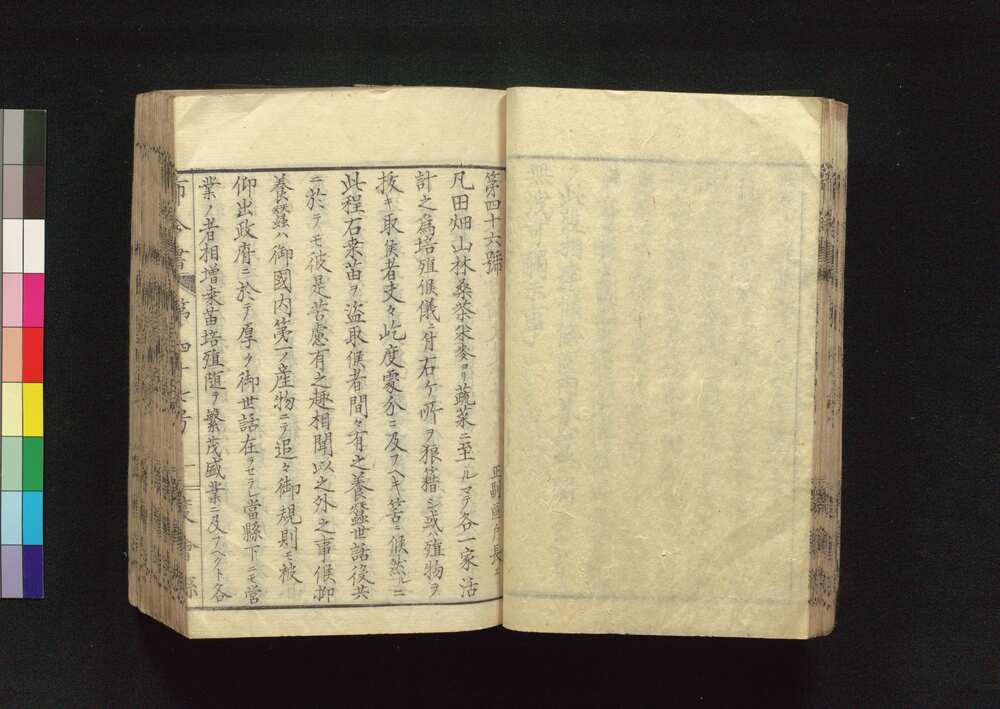 第四十六號
正副區戸長ニ
凡田畑山林桑茶米麥ヨリ蔬菜ニ至ルマテ各一家活
計之爲培殖候儀ニ付右ケ所ヲ狼藉シ或ハ殖物ヲ
抜キ取候者夫々屹度處分ニ及フヘキ筈ニ候然ルニ
此程右桒苗ヲ盗取候者間々有之養蠶世話役共
ニ於テモ彼是苦慮有之趣相聞以之外之事候抑
養蠶ハ御國内第一ノ産物ニテ追々御規則モ被
仰出政府ニ於テ厚ク御世話在ラセラレ當縣下ニモ營
業ノ者相増桒苗培殖随テ繁茂盛業ニ及フヘクト各
布令書 第四十六号